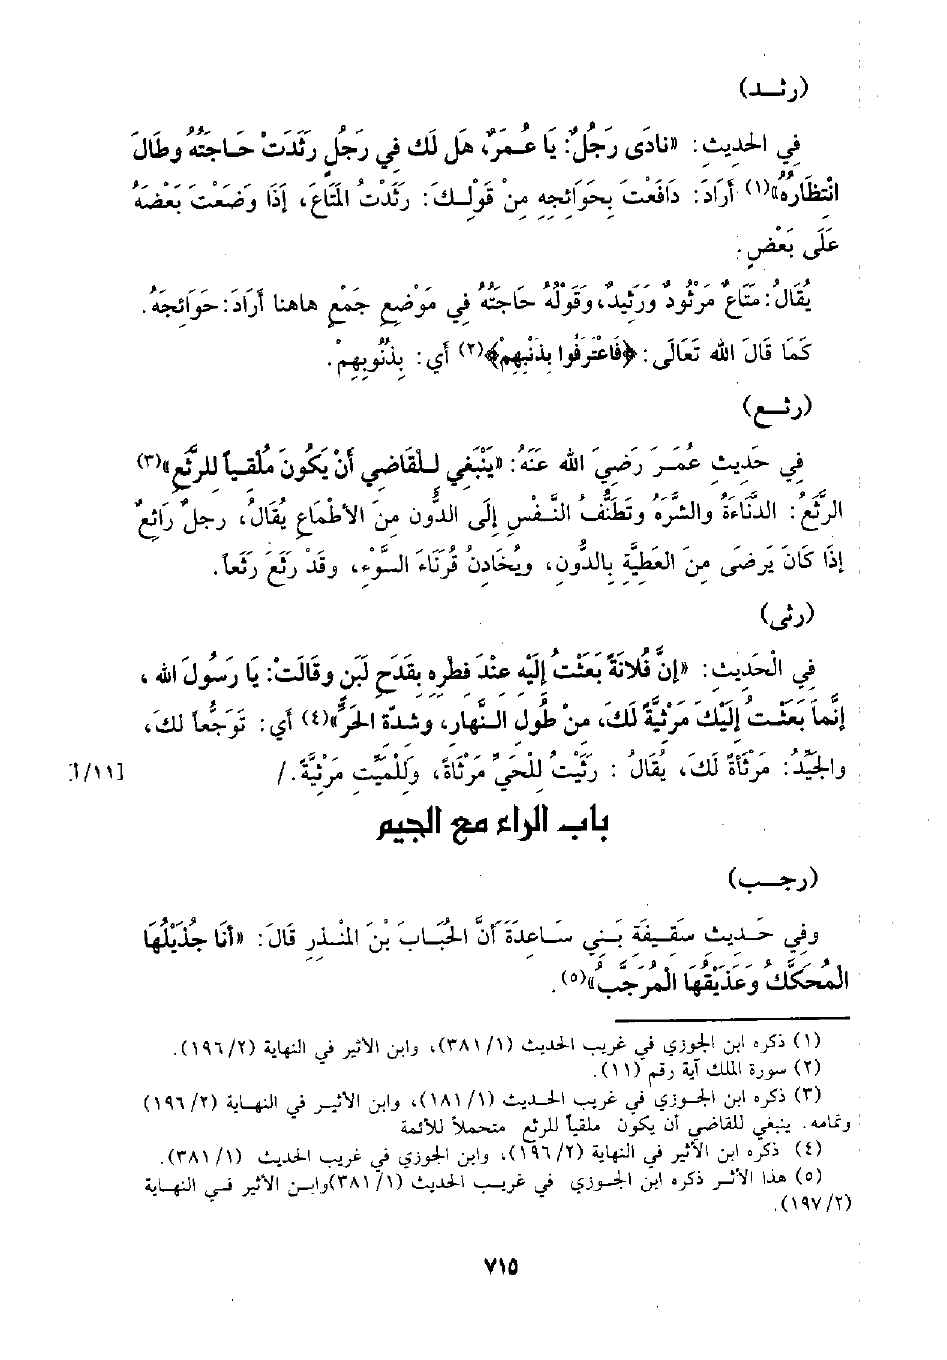 (رثـد)
في الحديثِ: «نادَى رَجُلٌ: يَا عُمَرُ، هَل لَك فِي رَجُلٍ رثَدَتْ حَاجَتُهُ وطَالَ
انْتِظَارُهُ»(١) أَرَادَ: دَافَعْتَ بِحَوَائِجِهِ مِنْ قَوْلِكَ: رَثَدْتُ المَتَاعَ، إذَا وَضَعْتَ بَعْضَهُ
عَلَى بَعْضٍ.
يُقَالُ: مَتَاعٌ مَرْثُودٌ وَرَثِيدٌ، وَقَوْلُهُ حَاجَتُهُ فِي مَوْضِعِ جَمْعٍ هاهنا أَرَادَ: حَوَائِجَهُ.
كَمَا قَالَ الله تَعَالَى: ﴿فَاعْتَرَفُوا بِذَنْبِهِمْ﴾(٢) أَي: بِذُنُوبِهِمْ.
(رثـع)
فِي حَدِيثِ عُمَرَ رَضِيَ الله عَنَهُ: «يَنْبَغِي لـلْقَاضِي أَنْ يَكُونَ مُلْقياً للرَّثَعِ»(٣)
الرَّثَعُ: الدَّنَاءَةُ والشرَّهُ وتَطَنُّفُ النَّفْسِ إلَى الدُّون مِنَ الأطْمَاعِ يُقَالُ، رجلٌ رَاثِعٌ
إذَا كَانَ يَرضَى مِنَ العَطِيَّةِ بالدُّونِ، ويُخَادِنُ قُرَنَاءَ السَّوْءِ، وقَدْ رَثَعَ رَثَعاً.
(رثى)
في الْحَدِيثِ: «إنَّ فُلانَةً بَعَثَتْ إلَيْهِ عنْدَ فطرِهِ بقَدَحِ لَبَنٍ وقَالَتْ: يَا رَسُولَ الله،
إنَّمَا بَعَثْتُ إلَيْكَ مَرْثِيَةً لَكَ، منْ طُولِ النَّهارِ، وشدَّةِ الحَرِّ»(٤) أَي: تَوَجُّعاً لكَ،
والجَيِّدُ: مَرْثَاةً لَكَ، يُقَالُ: رَثَيْتُ لِلْحَيِّ مَرْثَاةً، وَلِلْمَيِّتِ مَرْثِيَّةً. / [١١/أ]
باب الراء مع الجيم
(رجـب)
وفي حَديثِ سَقِيفَةِ بَنِي سَاعِدَةَ أَنَّ الحُبَابَ بْنَ المُنْذِرِ قَالَ: «أَنَا جُذَيْلُهَا
المُحَكَّكُ وَعُذَيْقُهَا المُرَجَّبُ»(٥).
(١) ذكره ابن الجوزي في غريب الحديث (٣٨١/١)، وابن الأثير في النهاية (١٩٦/٢).
(٢) سورة الملك آية رقم (١١).
(٣) ذكره ابن الجوزي في غريب الحديث (١٨١/١)، وابن الأثير في النهاية (١٩٦/٢)
وتمامه. ينبغي للقاضي أن يكون ملقياً للرثع متحملاً للأئمة
(٤) ذكره ابن الأثير في النهاية (١٩٦/٢)، وابن الجوزي في غريب الحديث (٣٨١/١).
(٥) هذا الأثر ذكره ابن الجوزي في غريب الحديث (٣٨١/١)وابن الأثير في النهاية
(١٩٧/٢).
٧١٥